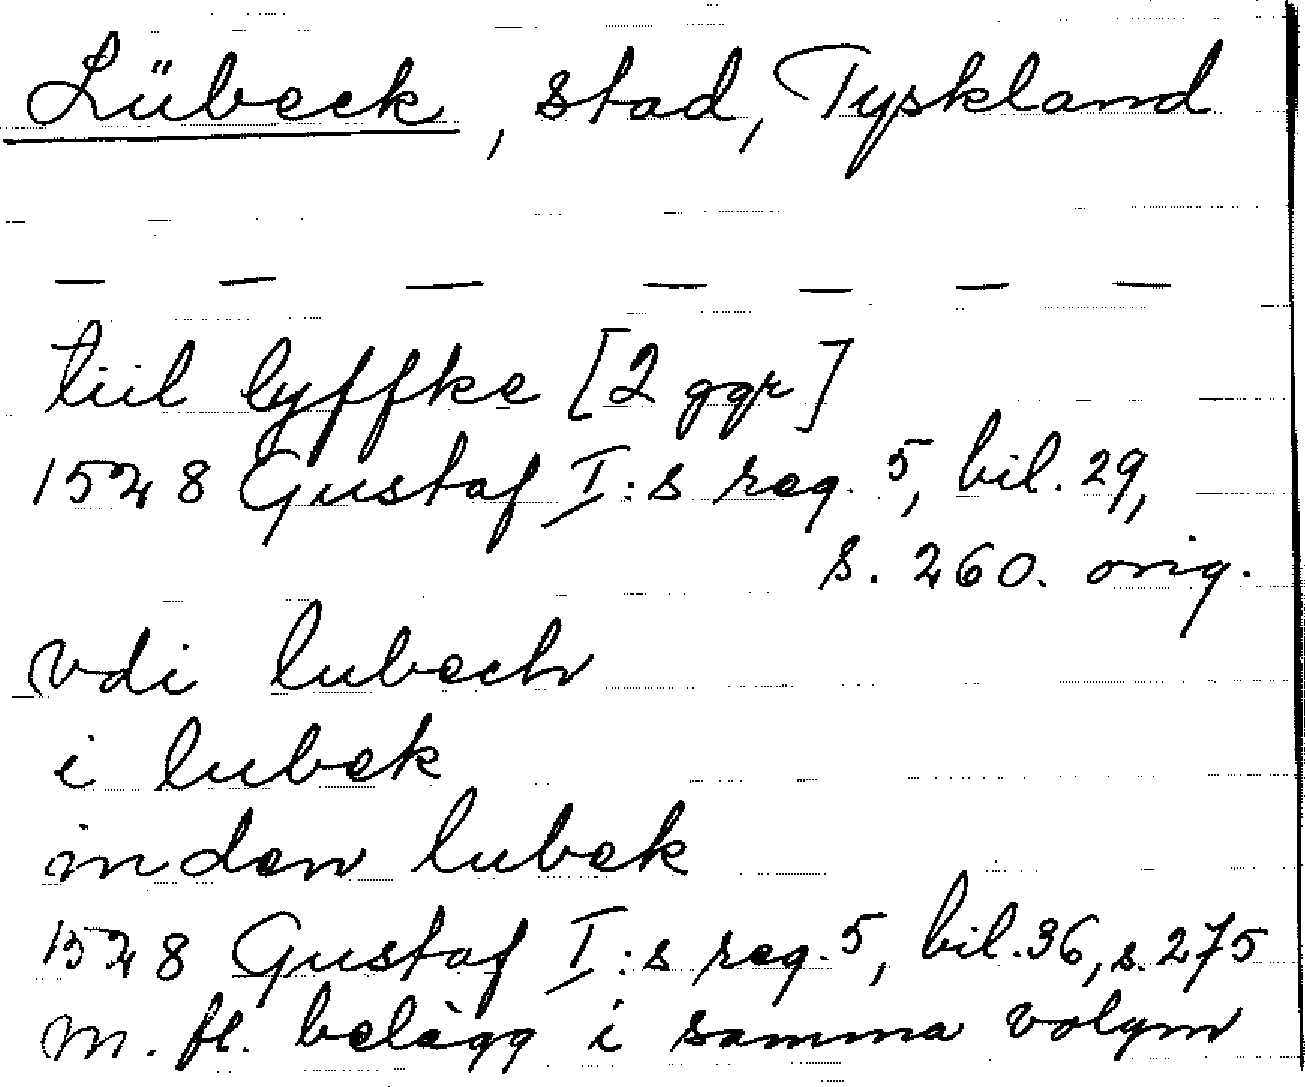 Lübeck, stad, Tyskland
— — — — — — —
tiil lyffke [2 ggr]
1528 Gustaf I:s reg. 5, bil. 29,
s. 260. orig.
vdi lubech
i lubek
inden lubek
1528 Gustaf I:s reg. 5, bil. 36, s. 275
m. fl. belägg i samma volym